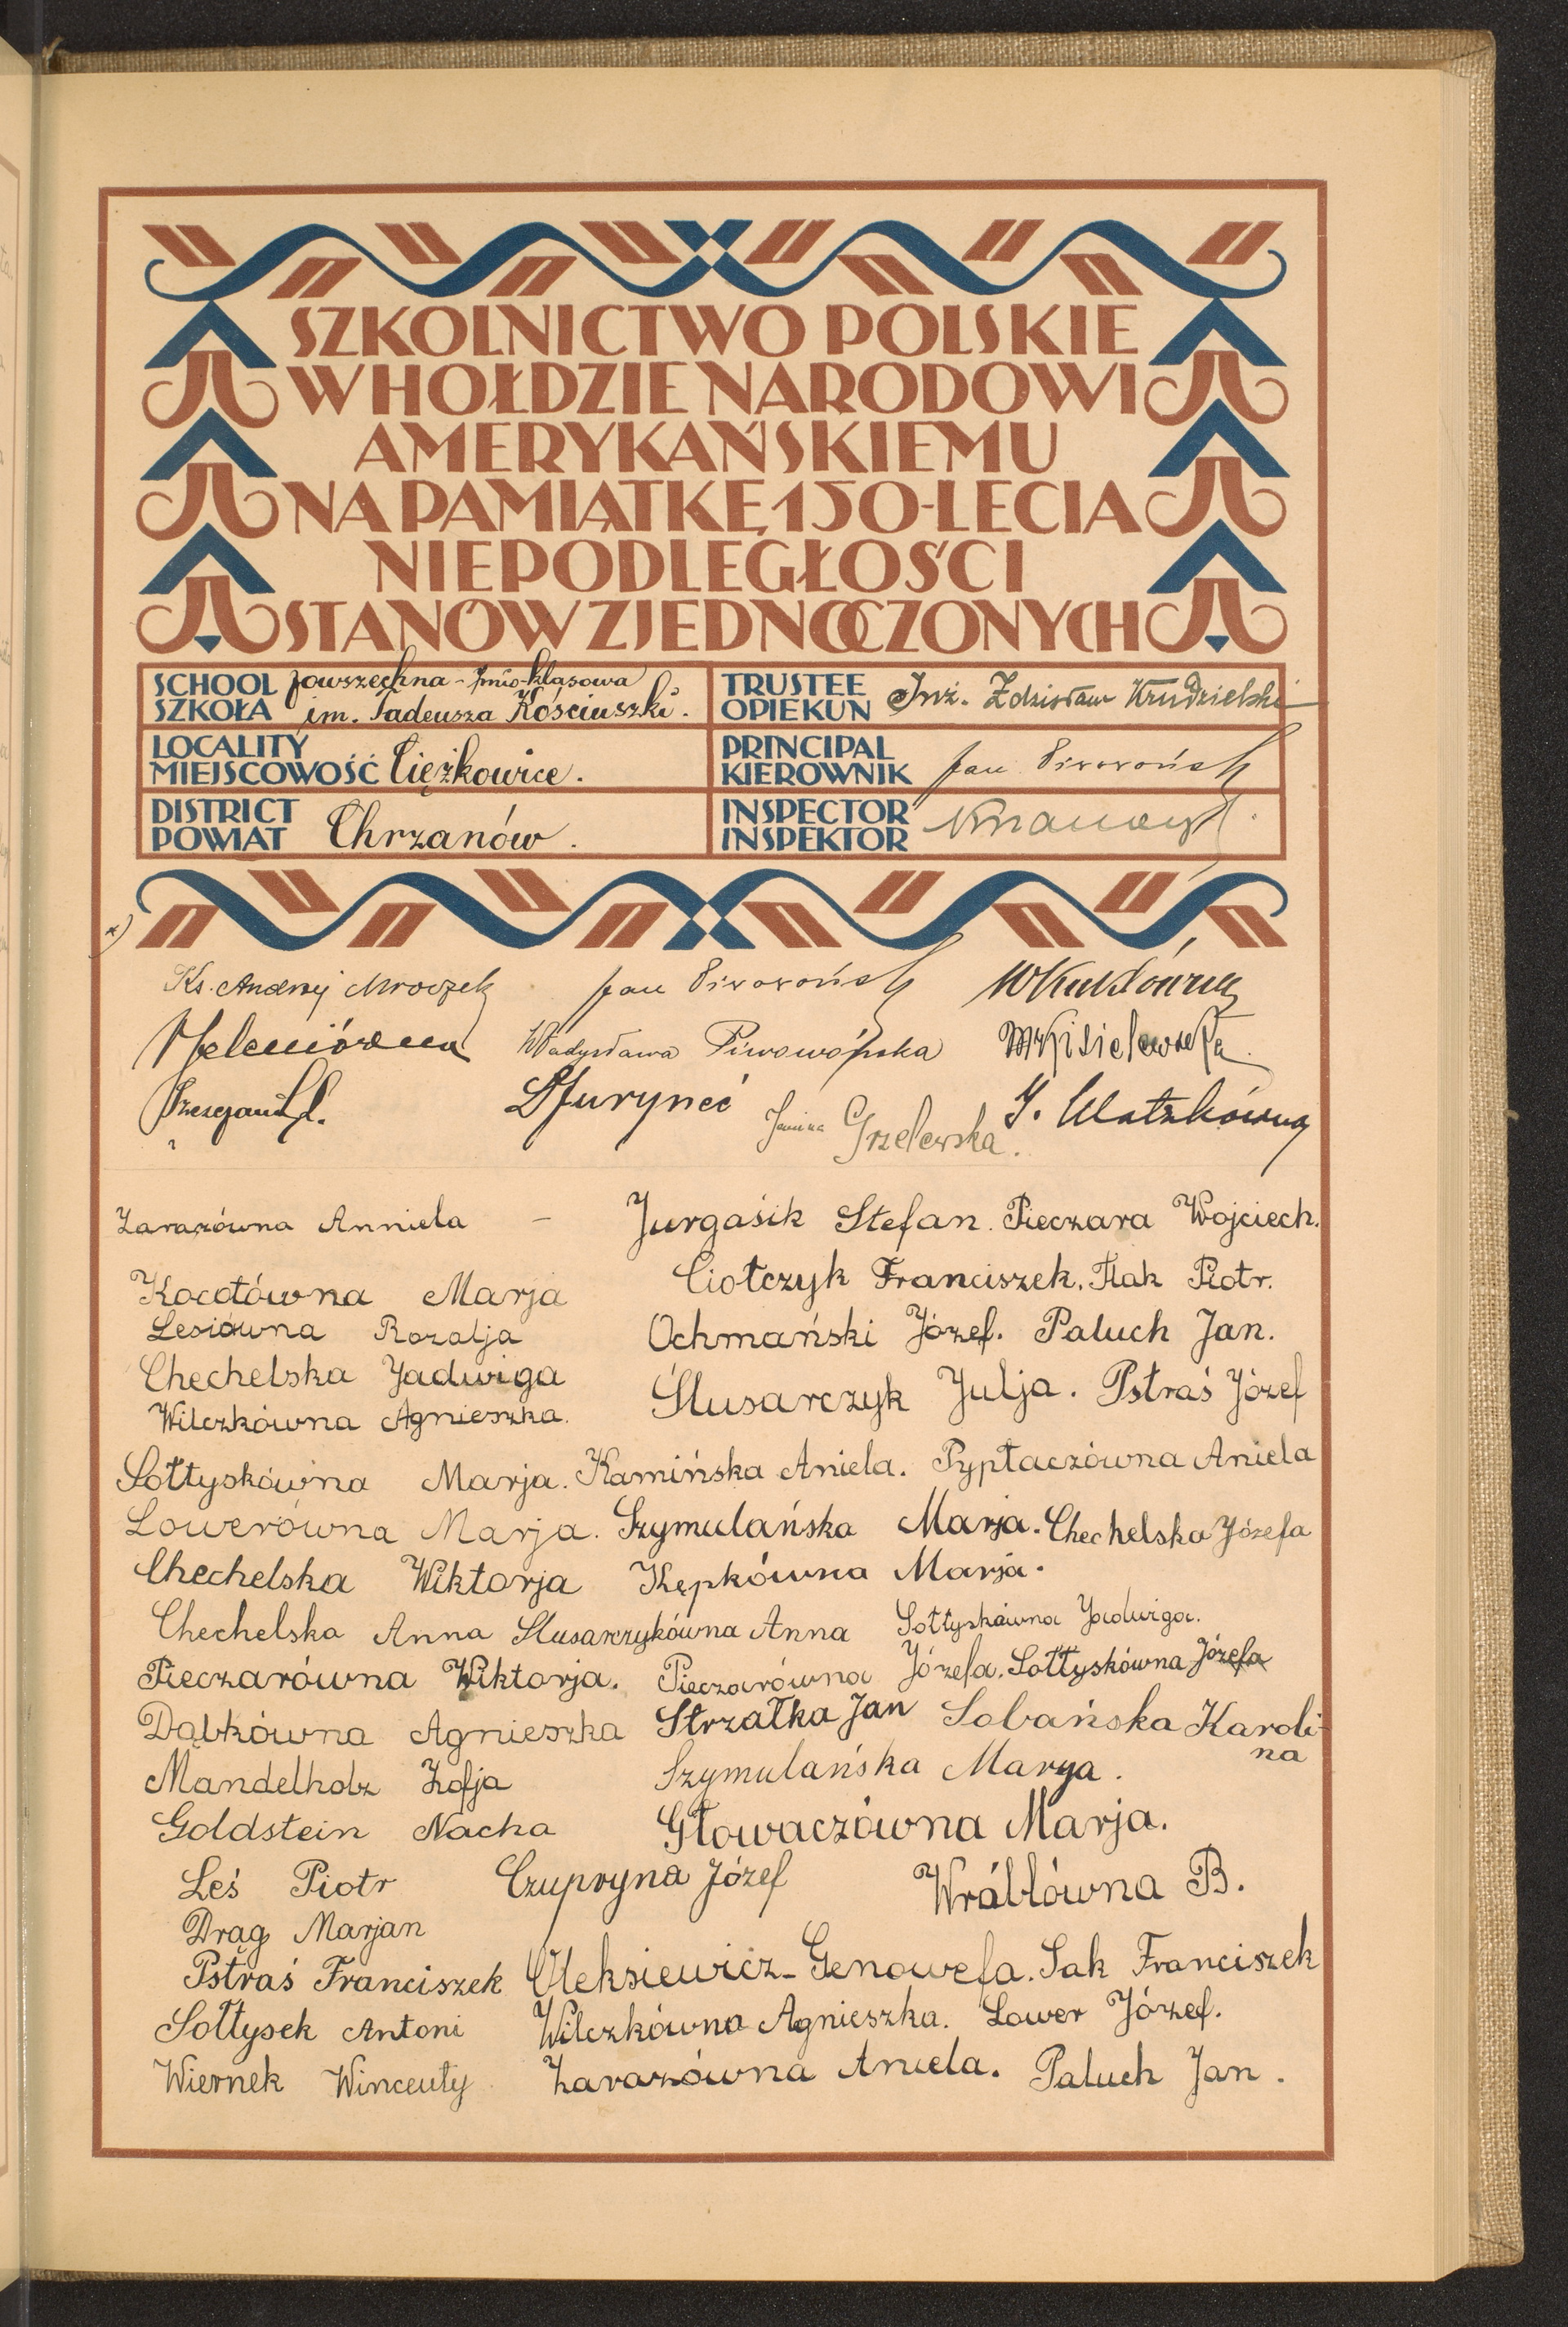 SZKOLNICTWO POLSKIE
W HOŁDZIE NARODOWI
AMERYKAŃSKIEMU
NA PAMIĄTKĘ 150-LECIA
NIEPODLEGŁOŚCI
STANÓW ZJEDNOCZONYCH
SCHOOL powszechna - 7mio-klasowa
SZKOŁA im. Tadeusza Kościuszki.
TRUSTEE
OPIEKUN Inż. Zdzisław Krudzielski
LOCALITY
MIEJSCOWOŚĆ Ciężkowice.
PRINCIPAL
KIEROWNIK Jan Piwowoński
DISTRICT
POWIAT Chrzanów.
INSPECTOR
INSPEKTOR
x)
Ks. Andrzej Mroczek Jan Piwowoński
Władysława Piwowońska M Kisielewska
Janina Grzelewska. J.
Zarazówna Anniela - Jurgaśik Stefan. Pieczara Wojciech.
Kocotówna Marja Ciołczyk Franciszek. Flak Piotr.
Lesiówna Rozalja Ochmański Józef. Paluch Jan.
Chechelska Jadwiga Ślusarczyk Julja. Pstraś Józef
Wilczkówna Agnieszka.
Sołtyskówna Marja. Kamińska Aniela. Pyptaczówna Aniela
Lowerówna Marja. Szymulańska Marja. Chechelska Józefa
Chechelska Wiktorja Kępkówna Marja.
Chechelska Anna Slusarczykówna Anna Sołtyskówna Jadwiga.
Pieczarówna Wiktorja. Pieczarówna Józefa. Sołtyskówna Józefa
Dąbkówna Agnieszka Strzałka Jan Sobańska Karoli-
na
Mandelholz Zofja Szymulańska Marya.
Goldstein Nacha Głowaczówna Marja.
Leś Piotr Czupryna Józef Wróblówna B.
Drąg Marjan
Pstraś Franciszek Oleksiewicz - Genowefa. Sak Franciszek
Sołtysek Antoni Wilczkówna Agnieszka. Lower Józef.
Wiernek Wincenty Zarazówna Aniela. Paluch Jan.